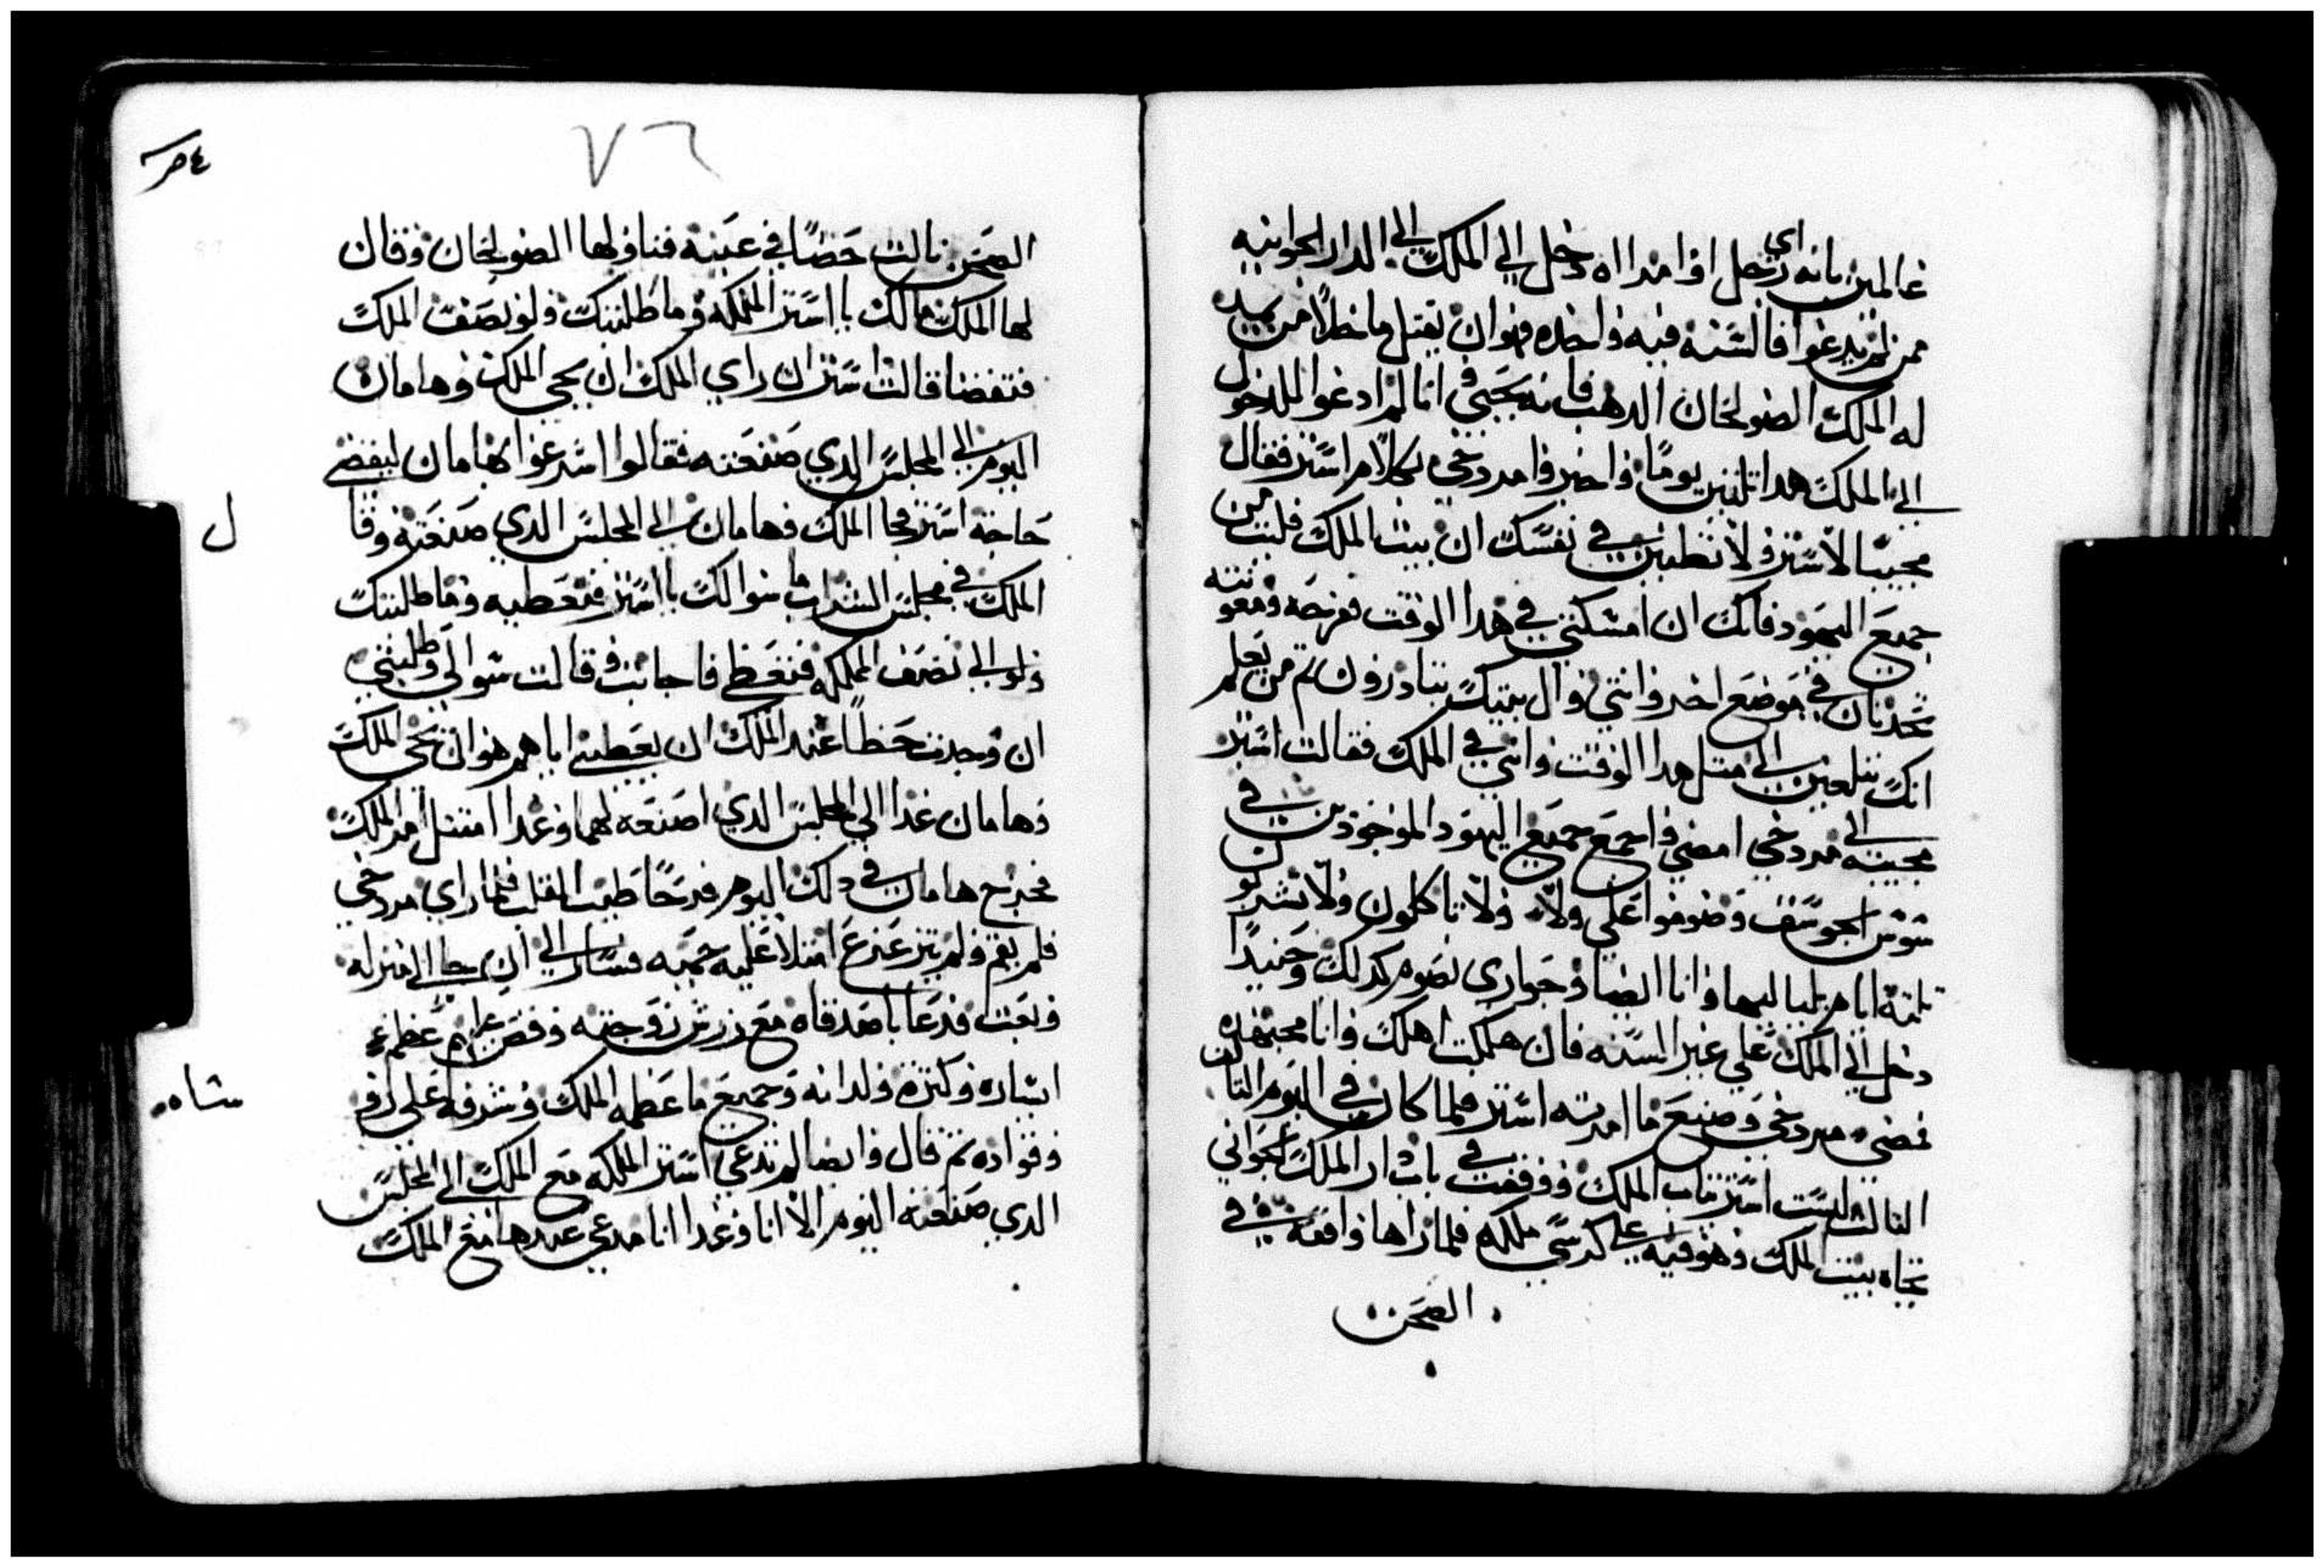 عالمين بانه اي رجل او امراه دخل الي الملك الي الدار الجوانيه
ممن لم يدعوا فالسنه فيه واحده وهوان يقتل ماخلا من يمد
له الملك الصولجان الدهب فانه يحيي وانا لم ادعوا للدخول
الي الملك هدا تلتين يومًا واخبروا مردخي بكلام استر فقال
مجيبًا لاستر لا تظنين في نفسك ان بيت الملك فلت من
جميع اليهود فانك ان امسكتي في هدا الوقت ففرجه ومعونته
تحدتان في موضع اخر وانتي وال بيتك تبادرون تم من يعلم
انك تبلغين الي متل هدا الوقت وانتي في الملك فقالت استر
مجيبه الي مردخي امضي واجمع جميع اليهود الموجودين في
سوس الجوسف وصوموا علي ولا ولا تاكلون ولا تشربون
تلتة ايام بلياليها وانا ايضا وجواري نصوم كدلك وحينيدًا
دخل الي الملك علي غير السنه فان هلكت اهلك وانا مجتهده
فمضي مردخي وصنع ما امرته استر فلما كان في اليوم التالت
التالت لبست استر تياب الملك ووقفت في باب دار الملك الجواني
تجاه بيت الملك وهو فيه علي كرسي ملكه فلما راها واقفه في
الصحن
٧٦
الصحن نالت حضًا في عينه فناولها الصولجان وقال
لها الملك مالك يا استر الملكه وما طلبتك ولو نصف الملك
فتقضا قالت استر ان راي الملك ان يجي الملك وهامان
اليوم الي المجلس الدي صنعته فقالوا اسرعوا بهامان ليقضي
حاجة استر فجا الملك وهامان الي المجلس الدي صنعته وقال
الملك في مجلس الشراب ما سوالك يا استر فتعطيه وما طلبتك
ولو الي نصف المملكه فتعطي فاجابت وقالت سوالي وطلبتي
ان وجدت حظًا عند الملك ان يعطيني اياهم هو ان يجي الملك
وهامان غدا الي المجلس الدي اصنعه لهما وغدا امتتل امر الملك
فخرج هامان في دلك اليوم فرحًا طيب القلب فلما راي مردخي
فلم يقم ولم يتزعزع امتلا عليه حميه فسار الي ان جا الي منزله
وبعت فدعا باصدقاه مع زرش زوجته وقص عليهم عظم
ايساره وكترة ولدانه وجميع ما عظمه الملك وشرفه علي روساه
وقواده تم قال وايضا لم تدعي استر الملكه مع الملك الي المجلس
الدي صنعته اليوم الا انا وغدا انا مدعي عندها مع الملك